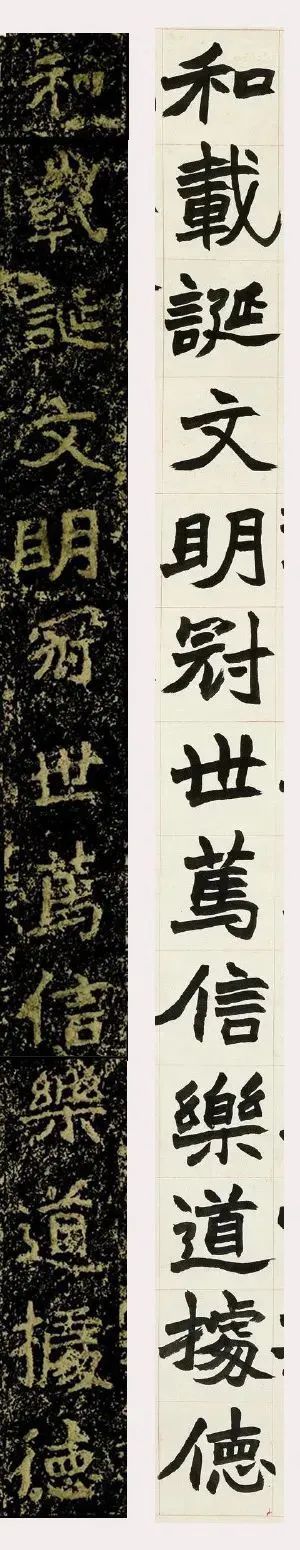 和載誕文明冠世篤信樂道據德
和載誕文明冠世篤信樂道據德